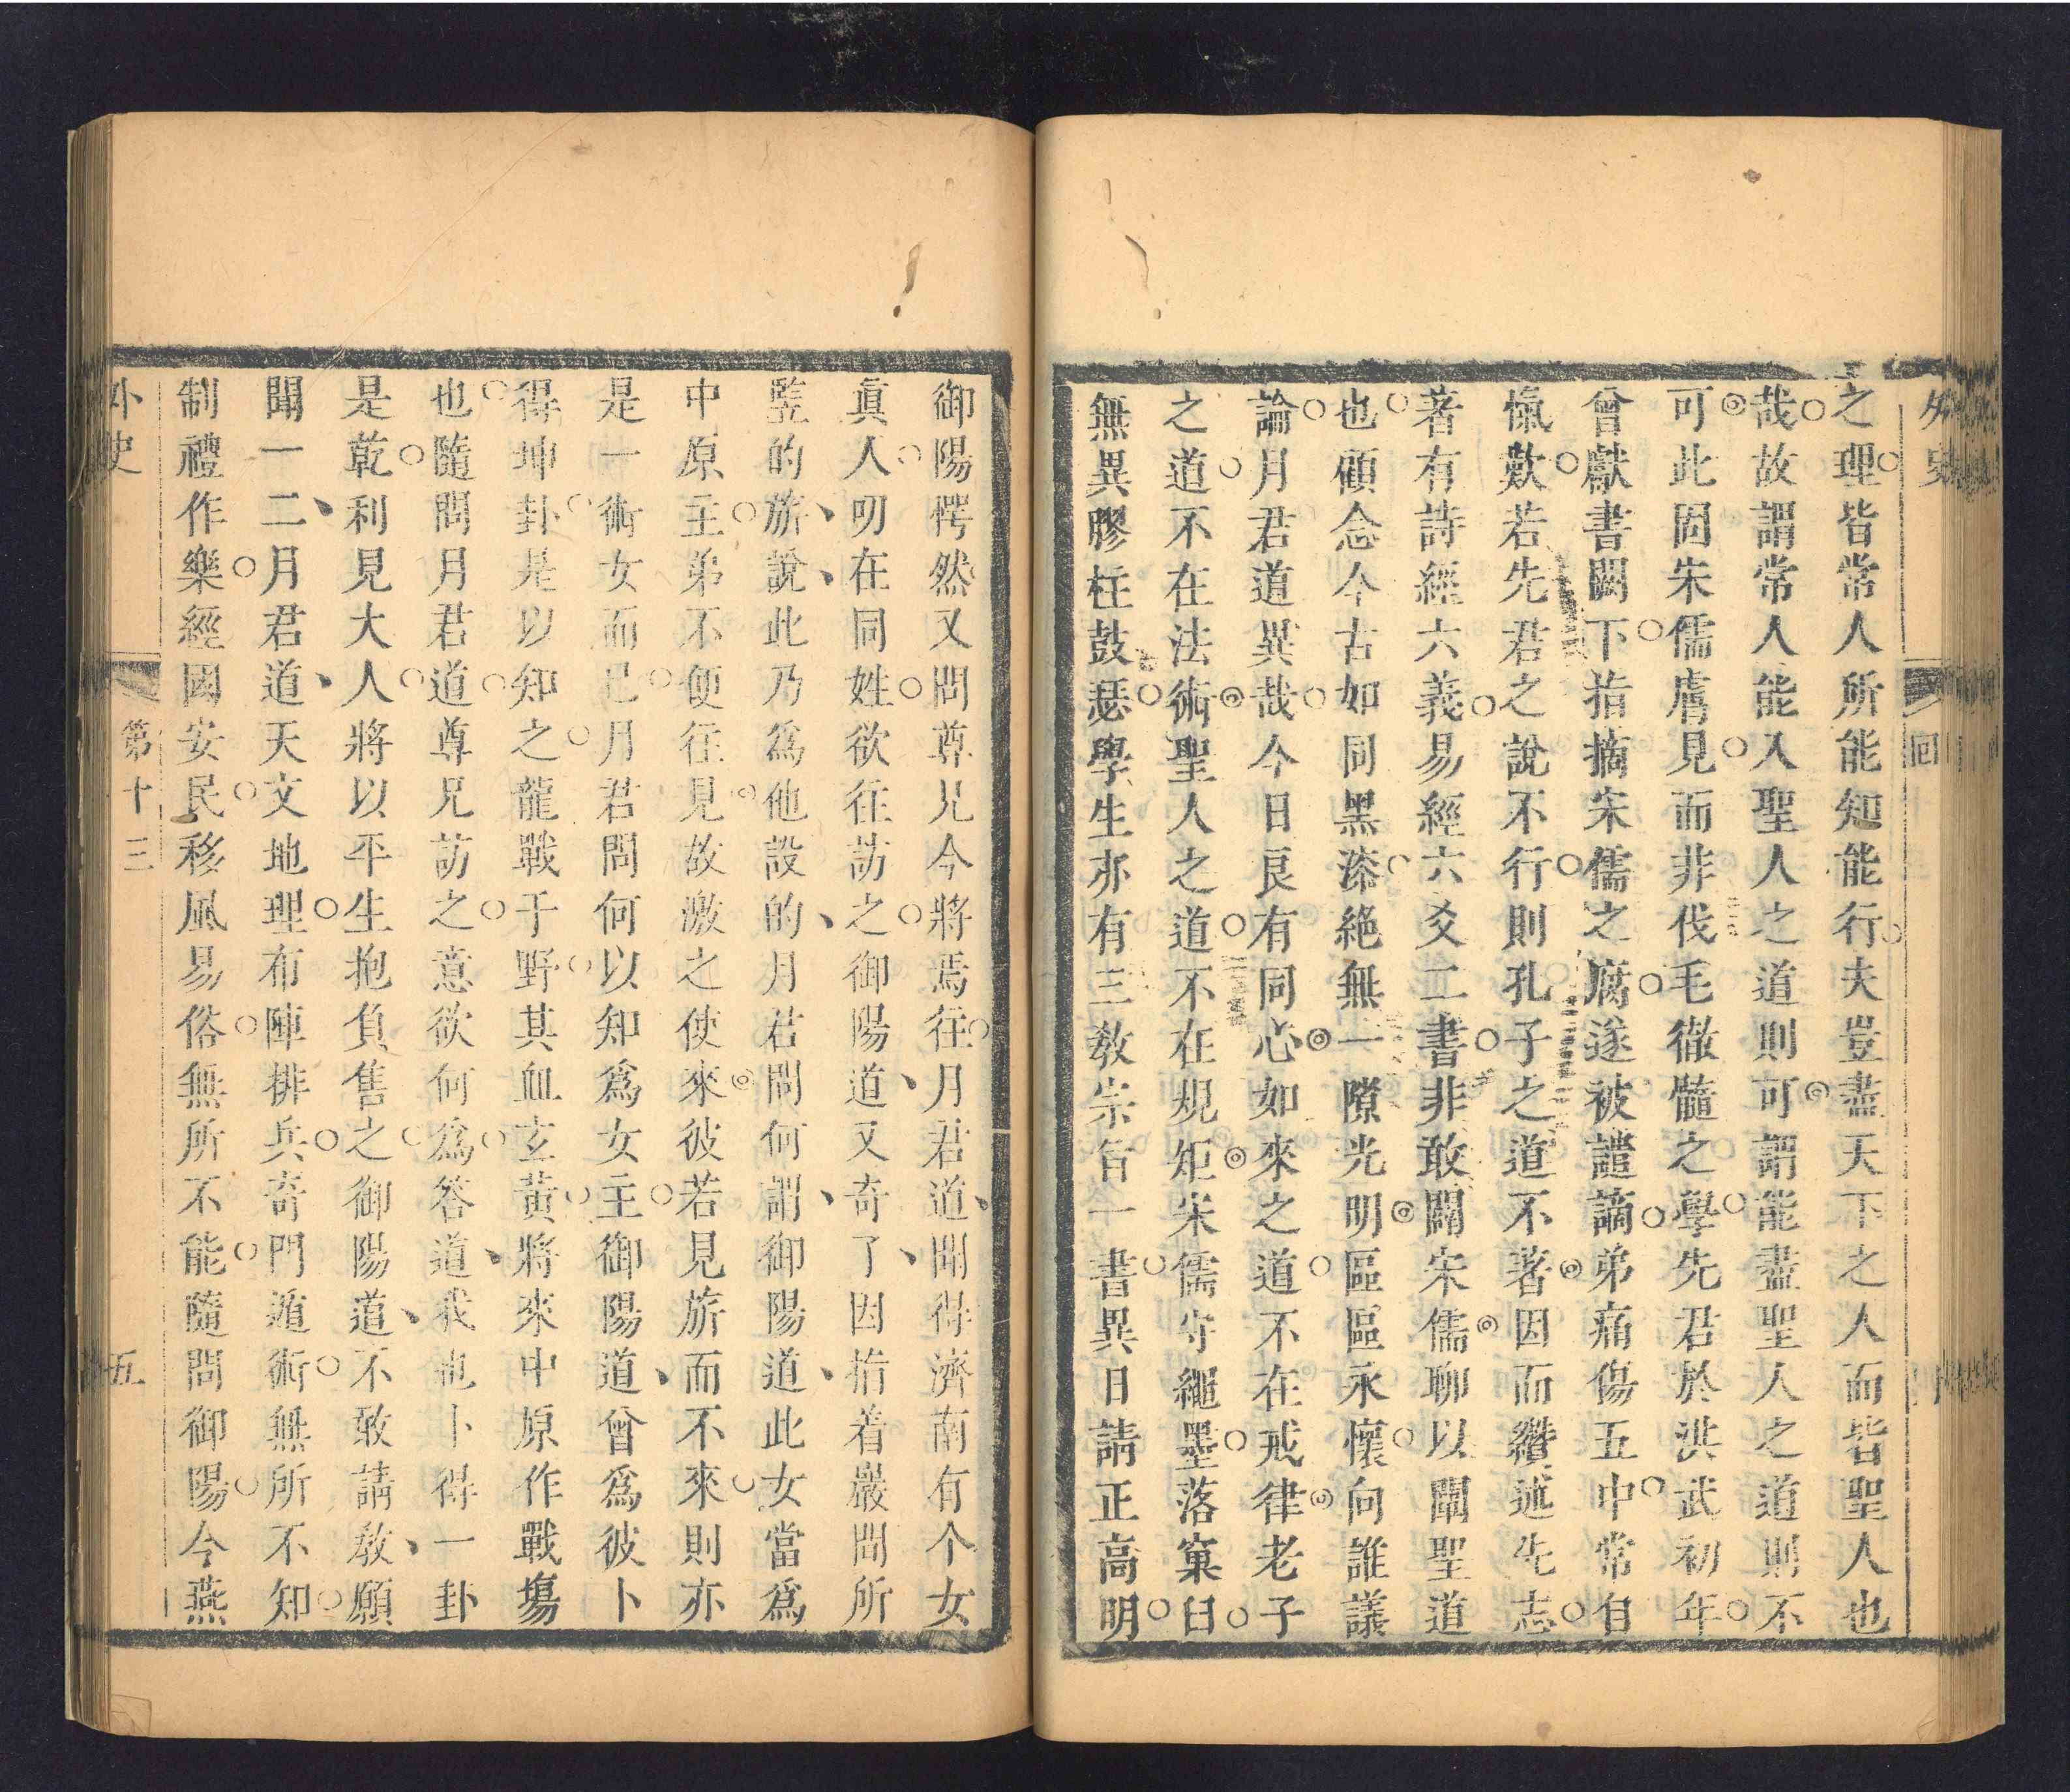 外史
回
之理皆常人所能知能行夫豈盡天下之人而皆聖人也
哉故謂常人能入聖人之道則可謂能盡聖人之道則不
可此固朱儒膚見而非伐毛徹髓之學先君於洪武初年
曾獻書闕下指摘宋儒之腐遂被譴謫弟痛傷五中常自
愾歎若先君之說不行則孔子之道不著因而纘述先志
著有詩經六義易經六爻二書非敢闢宋儒聊以闡聖道
也顧念今古如同黑漆絕無一隙光明區區永懷向誰議
論月君道異哉今日良有同心如來之道不在戒律老子
之道不在法術聖人之道不在規矩宋儒守繩墨落窠臼
無異膠柱鼓瑟學生亦有三敎宗旨一書異日請正高明
御陽愕然又問尊兄今將焉往月君道聞得濟南有个女
真人叨在同姓欲往訪之御陽道又奇了因指着嚴問所
竪的旂說此乃爲他設的月君問何謂御陽道此女當爲
中原主弟不便往見故激之使來彼若見旂而不來則亦
是一術女而已月君問何以知爲女主御陽道曾爲彼卜
得坤卦是以知之龍戰于野其血玄黃將來中原作戰塲
也隨問月君道尊兄訪之意欲何爲答道我也卜得一卦
是乾利見大人將以平生抱負售之御陽道不敢請敎願
聞一二月君道天文地理布陣排兵奇門遁術無所不知
制禮作樂經國安民移風易俗無所不能隨問御陽今燕
外史
第十三
五